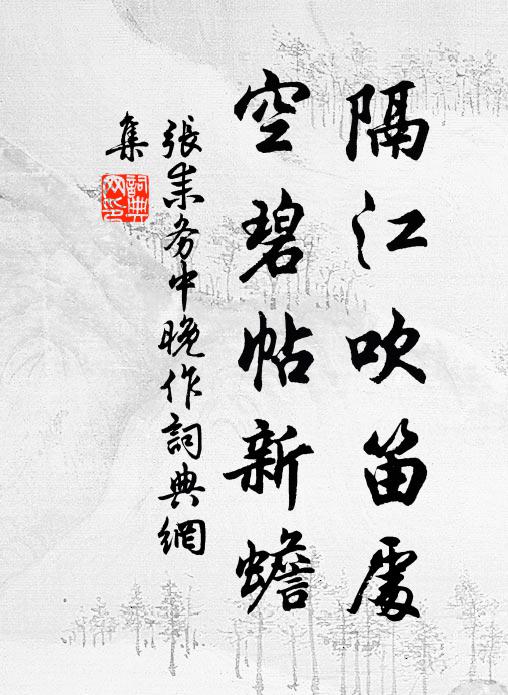 隔江吹笛處
空碧帖新蟾
張耒務中晚作詞典網
集
詞典
网印